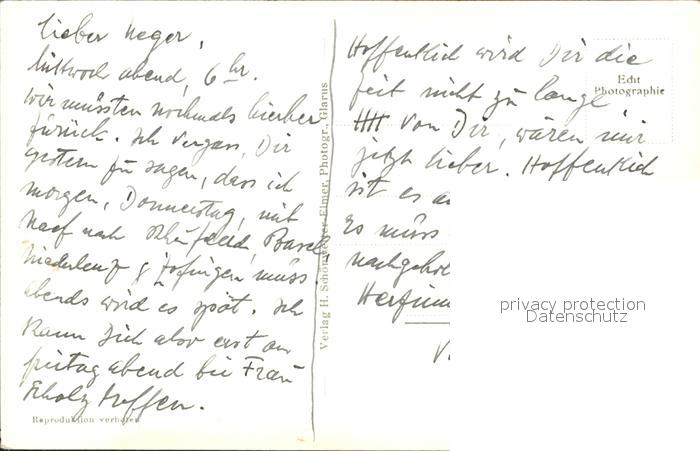 lieber Neger,
Mittwoch abend, 6 hr.
wir müssten nochmals hierher
zurück. Ich vergass, Dir
gestern zu sagen, dass ich
morgen, Donnerstag, mit
Naef nach Rheinfelden, Basel,
Niederlenz & Zofingen muss.
abends wird es spät. Ich
kann Dich also erst am
freitag abend bei Frau
treffen.
Reproduktion verboten
Verlag H. Schönwetter-Elmer, Photogr., Glarus
Echt
Photographie
Hoffentlich wird Dir die
Zeit nicht zu lange
von Dir, wären mir
jetzt lieber. Hoffentlich
ist es
Es muss
privacy protection
Datenschutz